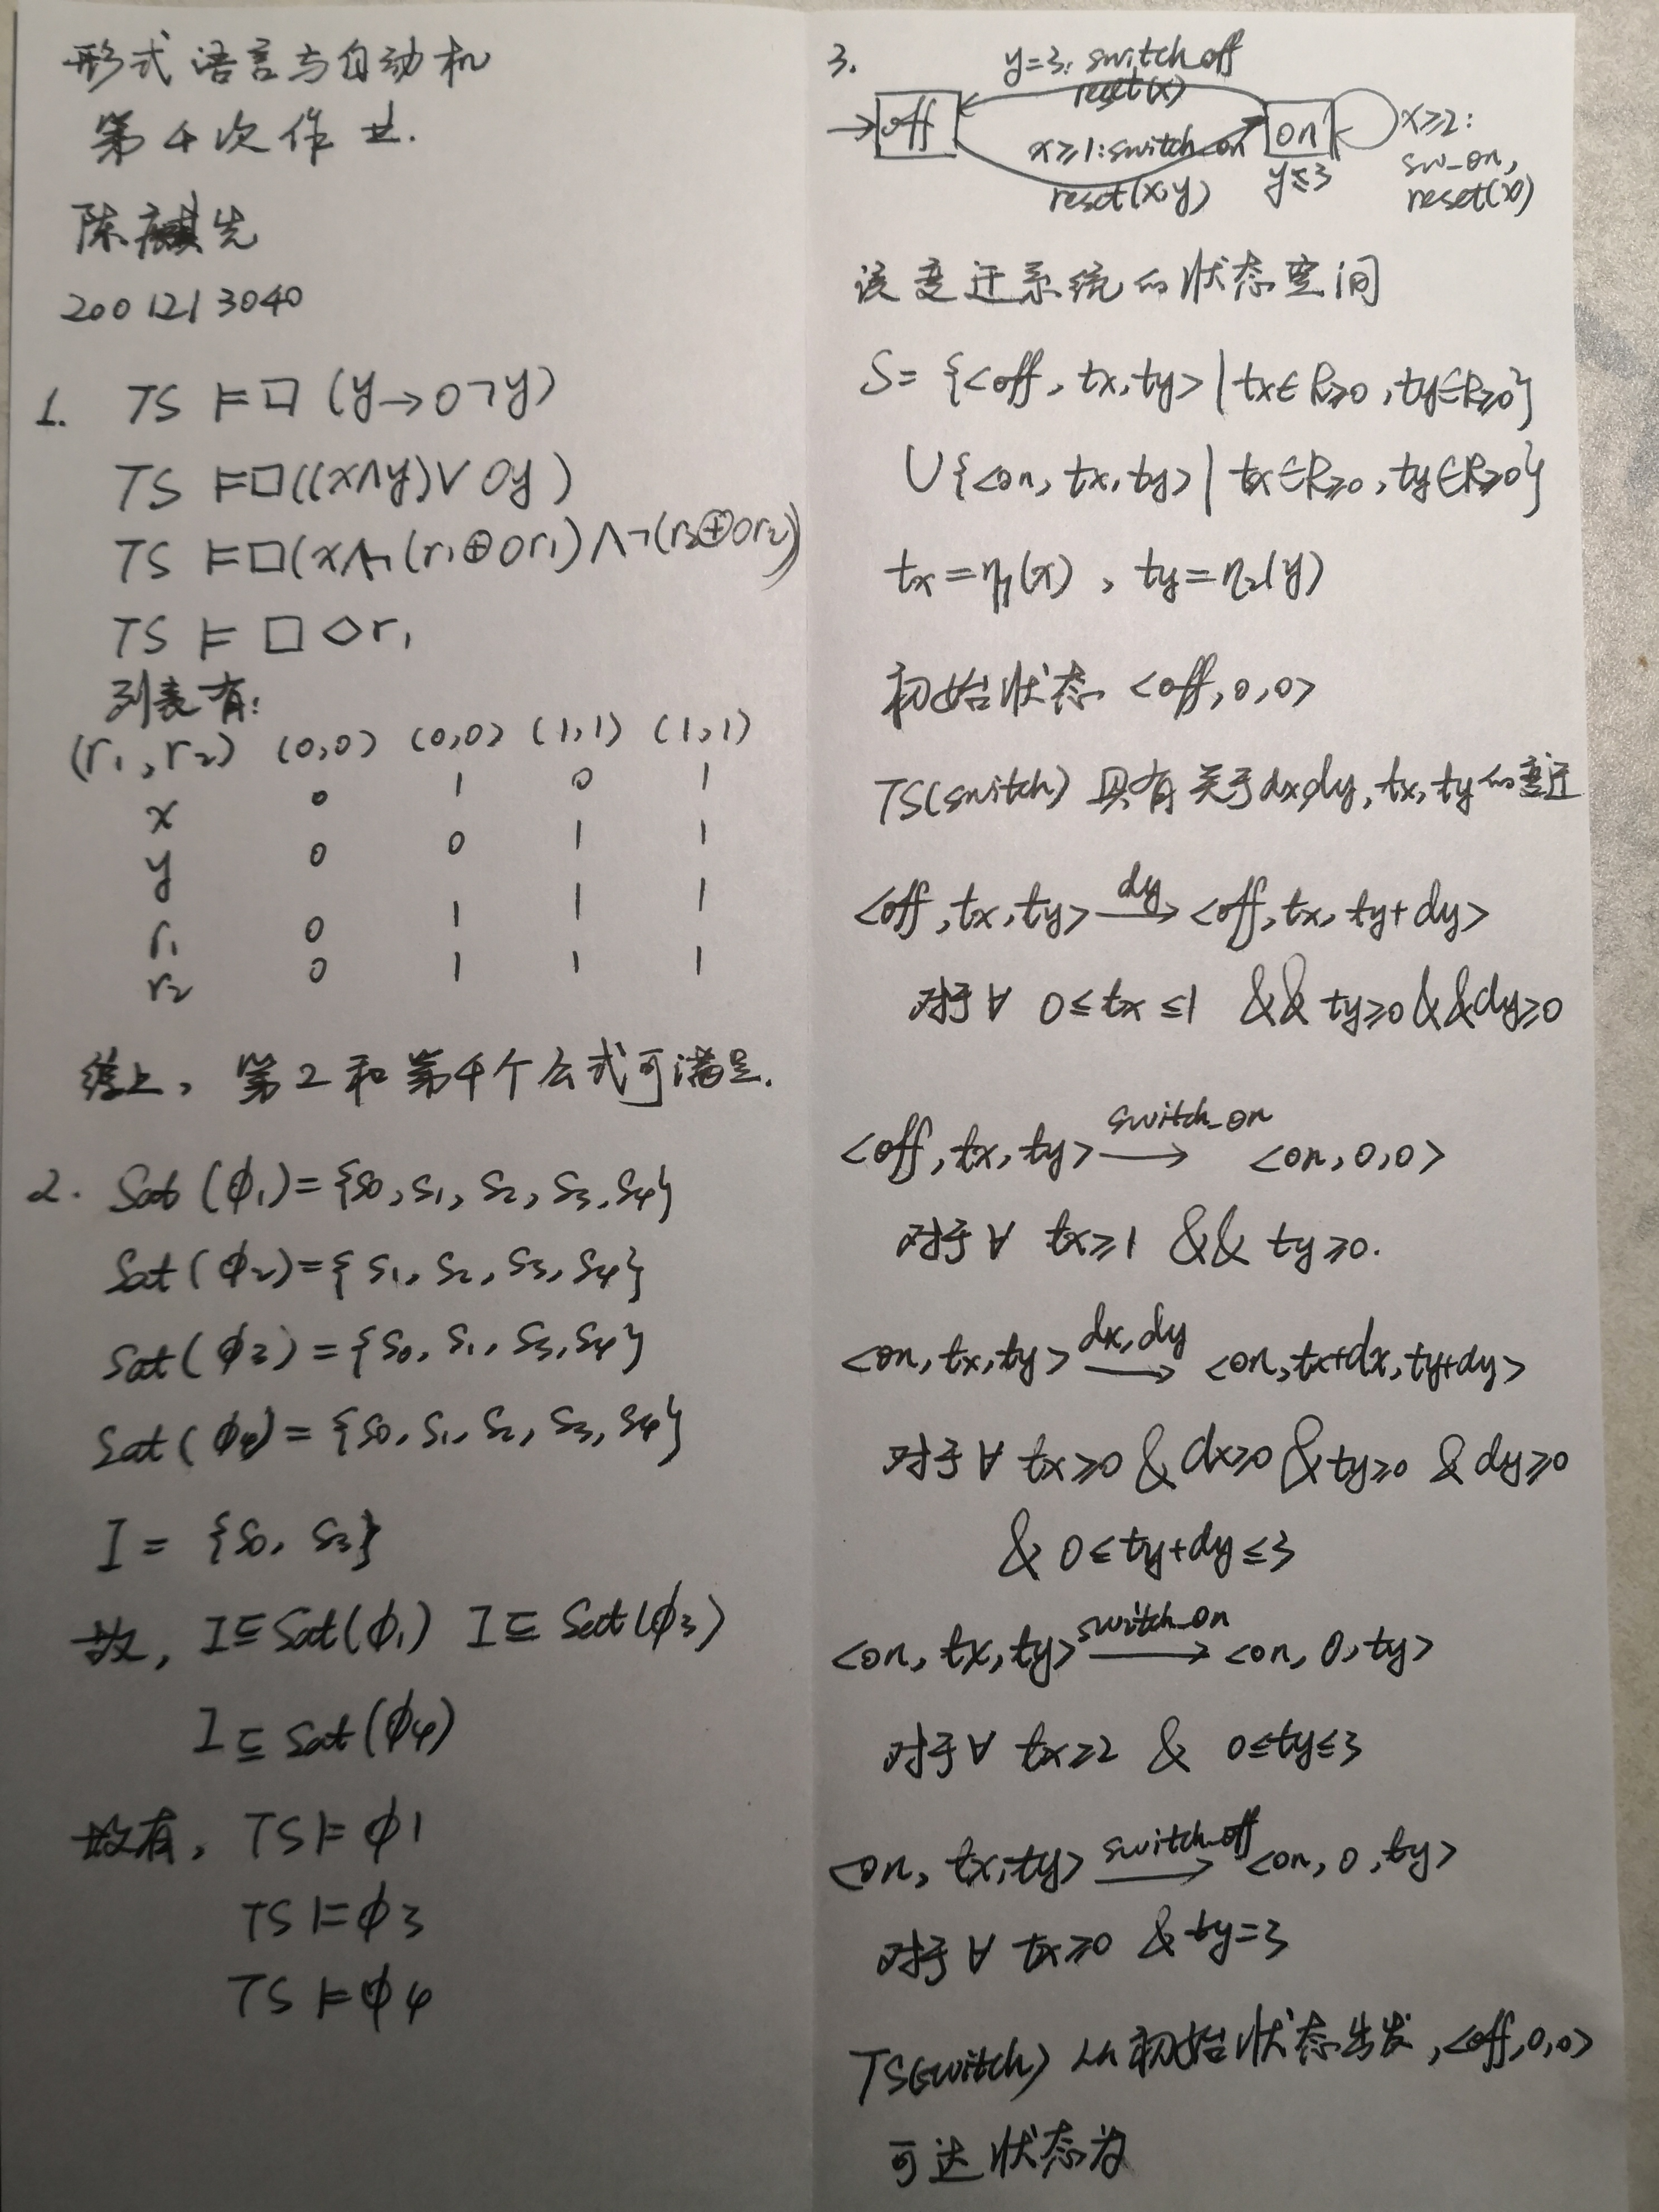 形式语言与自动机
第4次作业.
陈麒先
2001213040
1. TS ⊨□ (y→○¬y)
TS ⊨□((x∧y)∨○y)
TS ⊨□(x∧¬(r₁⊕○r₁)∧¬(r₂⊕○r₂))
TS ⊨ □◇r₁
列表有:
(r₁,r₂) (0,0) (0,0) (1,1) (1,1)
x 0 1 0 1
y 0 0 1 1
r₁ 0 1 1 1
r₂ 0 1 1 1
综上, 第2和第4个公式可满足.
2. Sat(ϕ₁)={s0,s1,s2,s3,s4}
Sat(ϕ₂)={s1,s2,s3,s4}
Sat(ϕ₃)={s0,s1,s3,s4}
Sat(ϕ₄)={s0,s1,s2,s3,s4}
I = {s0, s3}
故, I⊆Sat(ϕ₁) I⊆Sat(ϕ₃)
I⊆Sat(ϕ₄)
故有, TS⊨ϕ1
TS⊨ϕ3
TS⊨ϕ4
3. y=3: switch_off
reset(x)
off
on
x≥1:switch_on
reset(x,y)
y≤3
x≥2:
sw_on,
reset(x)
该变迁系统的状态空间
S= {<off, tx, ty> | tx∈R≥0, ty∈R≥0}
∪{<on, tx, ty> | tx∈R≥0, ty∈R≥0}
tx=η₁(x) , ty=η₂(y)
初始状态 <off,0,0>
TS(switch) 具有关于dx,dy,tx,ty的变迁
<off,tx,ty> dy→ <off,tx,ty+dy>
对于∀ 0≤tx≤1 && ty≥0&&dy≥0
<off,tx,ty> switch_on→ <on,0,0>
对于∀ tx≥1 && ty≥0.
<on,tx,ty> dx,dy→ <on,tx+dx,ty+dy>
对于∀ tx≥0 & dx≥0 & ty≥0 & dy≥0
& 0≤ty+dy≤3
<on, tx, ty> switch_on→ <on, 0, ty>
对于∀ tx≥2 & 0≤ty≤3
<on, tx,ty> switch_off→ <on, 0, ty>
对于∀ tx≥0 & ty=3
TS(switch) 从初始状态出发,<off,0,0>
可达状态为